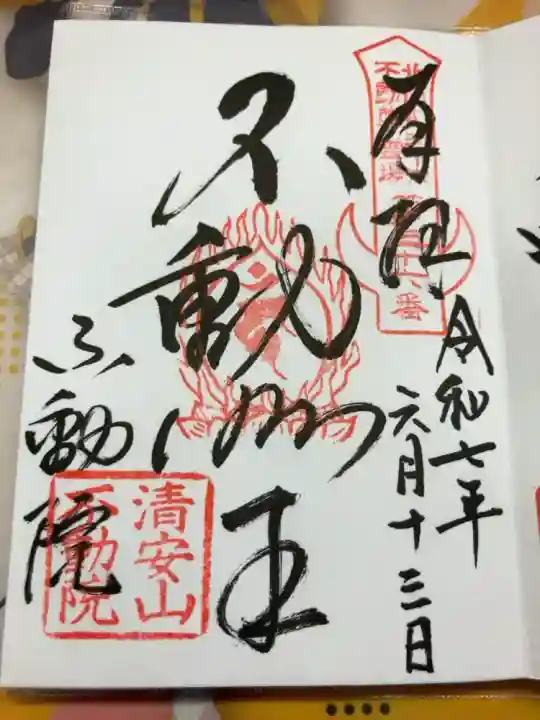 奉拝
令和七年
六月十三日
不動明王
不動院
清安山
不動院
不動尊霊場
番